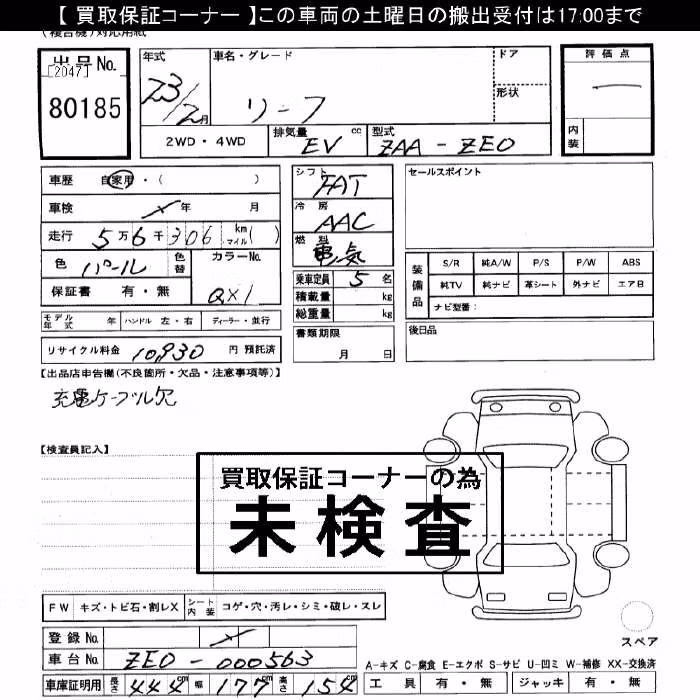 【 買取保証コーナー 】この車両の土曜日の搬出受付は17:00まで
(複合機)対応用紙
出品No.
[2047]
80185
年式
23/2月
車名・グレード
リーフ
ドア
形状
2WD・4WD
排気量 EV cc
型式 ZAA-ZE0
評価点
内装
車歴 自家用・( )
車検 年 月
走行 5万6千306 km マイル( )
色 パール
色替
カラーNo. QX1
保証書 有・無
モデル年式 年
ハンドル 左・右
ディーラー・並行
リサイクル料金 10,930 円 預託済
シフト FAT
冷房 AAC
燃料 電気
乗車定員 5 名
積載量 kg
総重量 kg
書類期限
月 日
セールスポイント
装備品
S/R 純A/W P/S P/W ABS
純TV 純ナビ 革シート 外ナビ エアB
ナビ型番:
後日品
【出品店申告欄(不良箇所・欠品・注意事項等)】
充電ケーブル欠
【検査員記入】
買取保証コーナーの為
未検査
FW キズ・トビ石・割レX
シート内装 コゲ・穴・汚レ・シミ・破レ・スレ
登録No.
車台No. ZE0-000563
車庫証明用 長さ 444cm 幅 177cm 高さ 154cm
スペア
A-キズ C-腐食 E-エクボ S-サビ U-凹ミ W-補修 XX-交換済
工具 有・無 ジャッキ 有・無